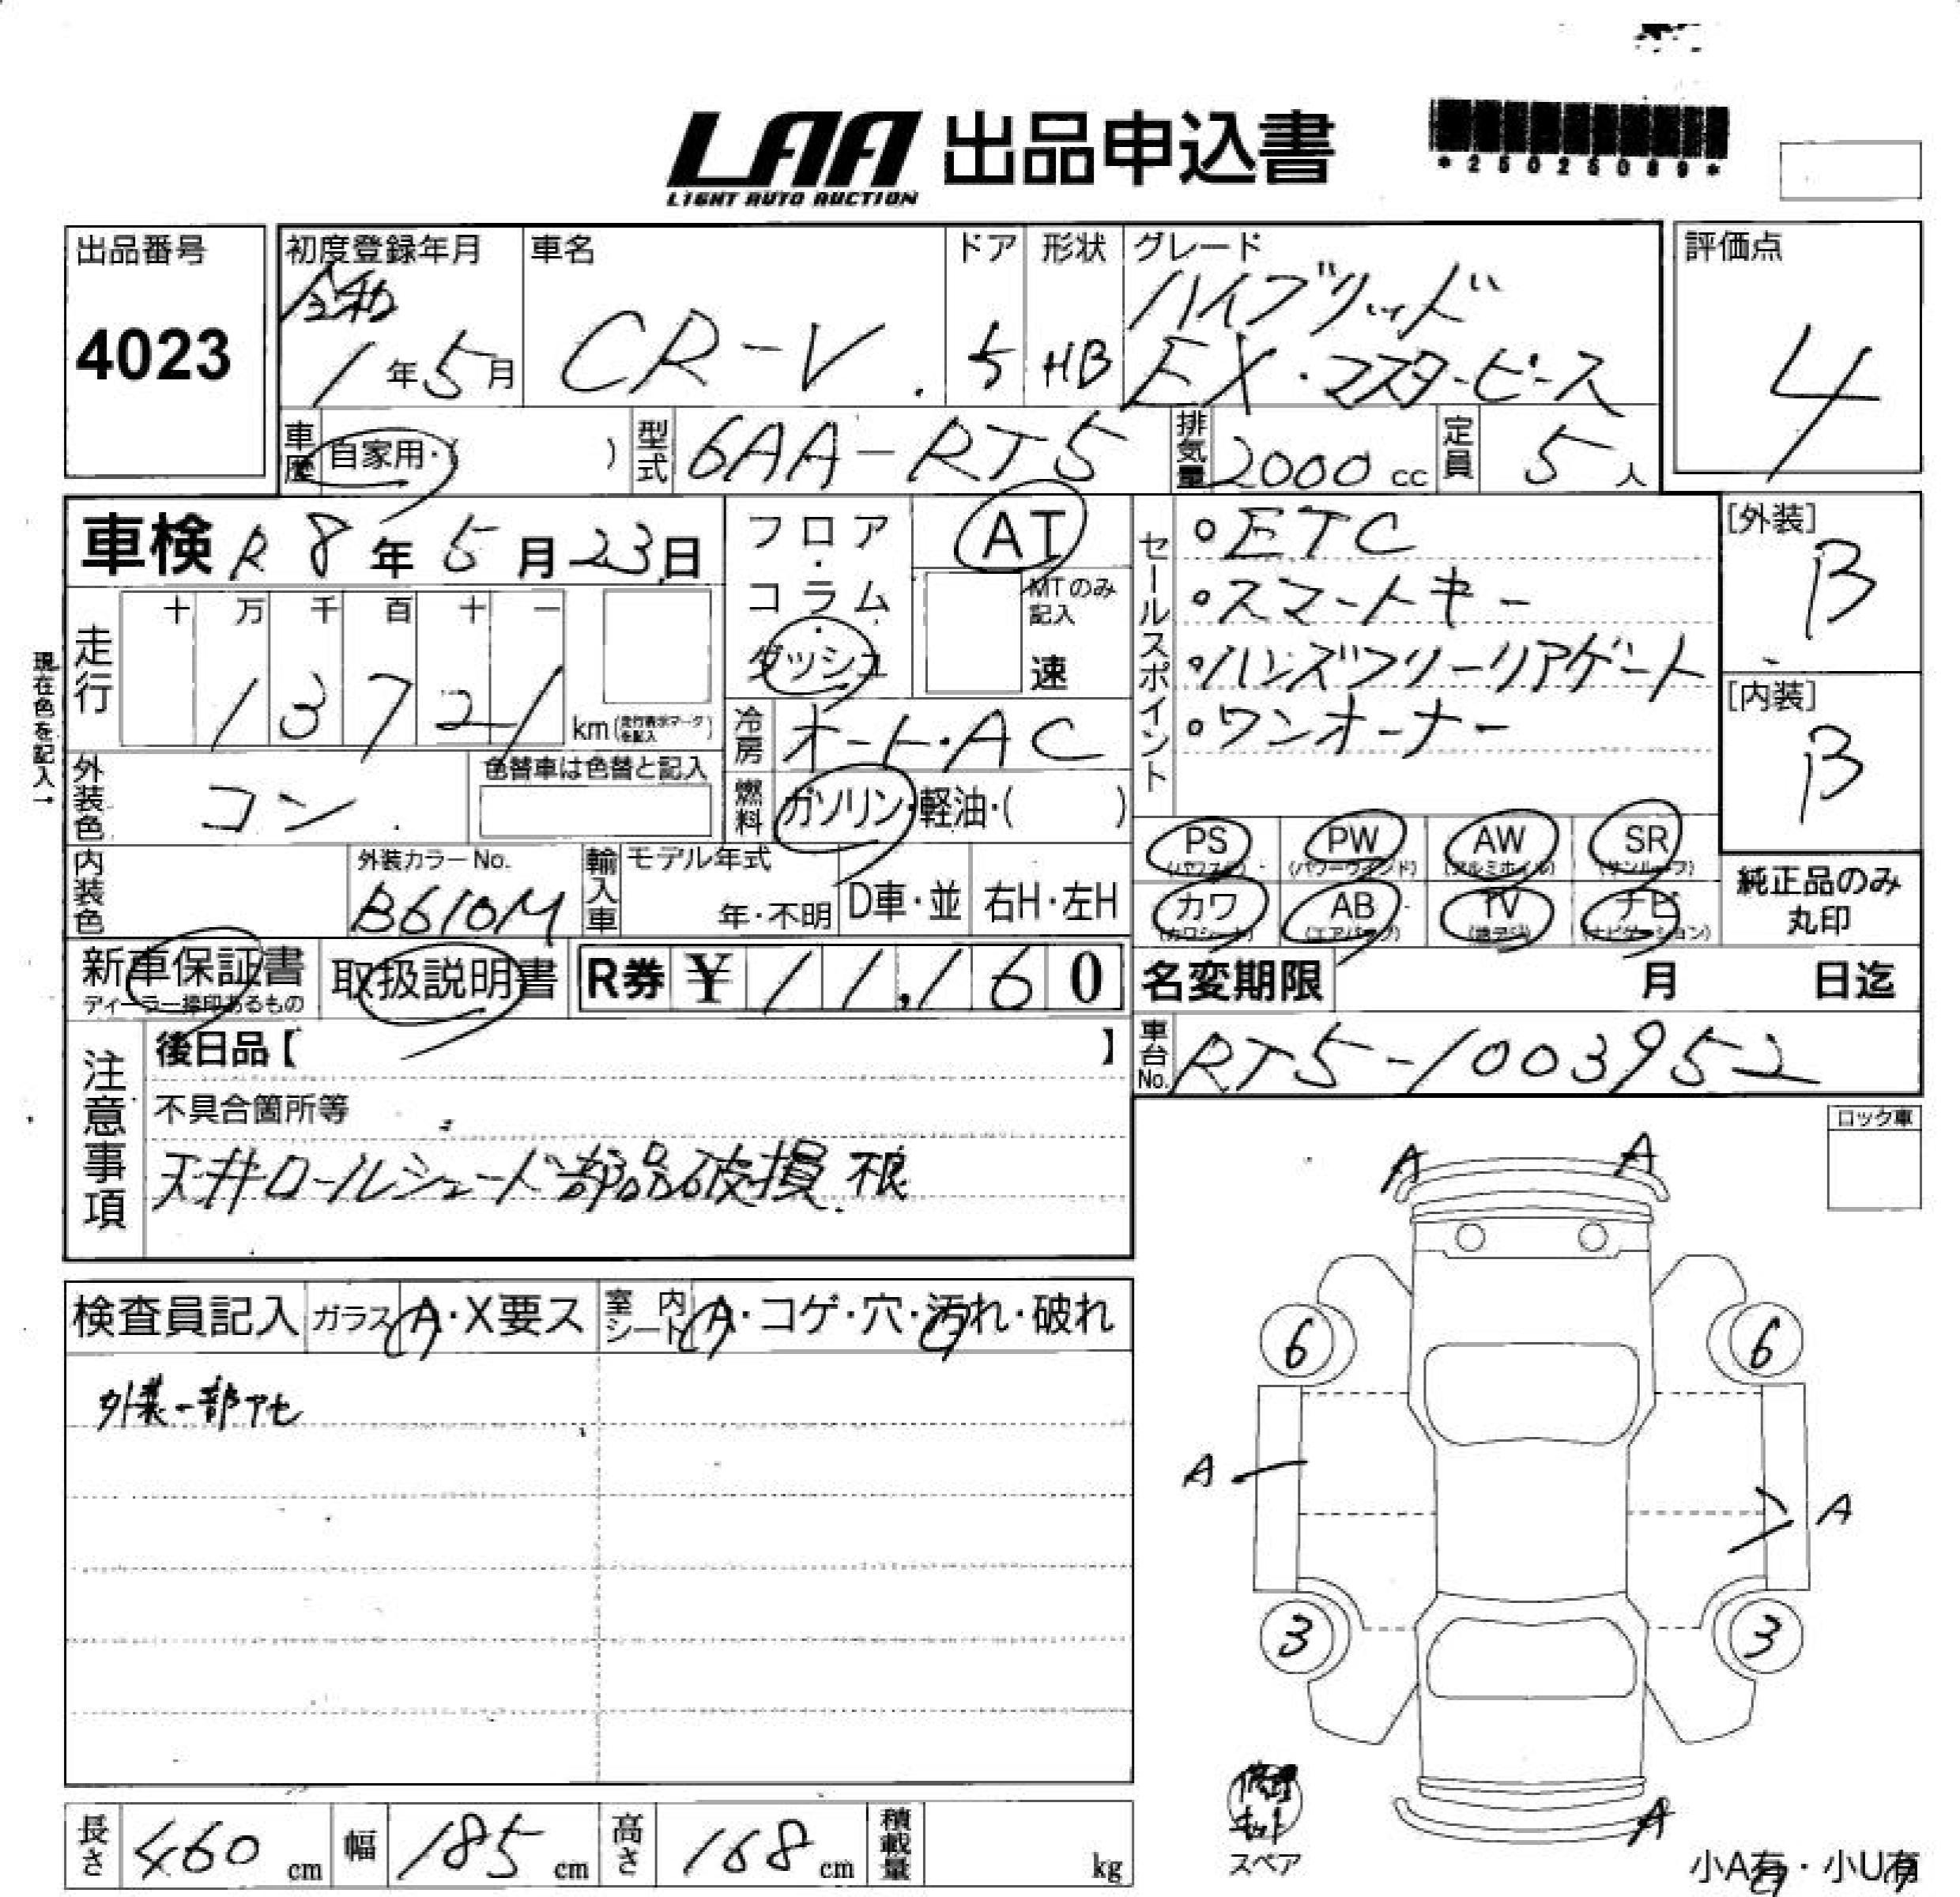 LAA 出品申込書
LIGHT AUTO AUCTION
*25025089*
出品番号
4023
初度登録年月
令和
1年5月
車名
CR-V
ドア
5
形状
HB
グレード
ハイブリッド
EX・マスターピース
評価点
4
車歴 自家用・( )
型式 6AA-RT5
排気量 2000cc
定員 5人
車検 R8年5月23日
フロア・コラム・ダッシュ
AT
MTのみ記入
速
セールスポイント
○ETC
○スマートキー
○ハンズフリーリアゲート
○ワンオーナー
[外装]
B
[内装]
B
現在色を記入→
走行
十 万 千 百 十 一
1 3 7 2 1 km(走行表示マークを記入)
冷房 オート・AC
外装色 コン
色替車は色替と記入
燃料 ガソリン・軽油・( )
PS PW AW SR
(パワステ) (パワーウインド) (アルミホイル) (サンルーフ)
カワ AB TV ナビ
(カワシート) (エアバック) (地デジ) (ナビゲーション)
純正品のみ
丸印
内装色
外装カラーNo.
B610M
輸入車
モデル年式
年・不明
D車・並
右H・左H
新車保証書
ディーラー捺印あるもの
取扱説明書
R券 ¥11,160
名変期限 月 日迄
車台No. RT5-1003952
注意事項
後日品【 】
不具合箇所等
天井ロールシェード部品破損 不良
ロック車
A A
検査員記入
ガラス A・X要ス
室内シート A・コゲ・穴・汚れ・破れ
外装一部アセ
6 6
A
A
3 3
修理キット
スペア
A
小A有・小U有
長さ 460cm
幅 185cm
高さ 168cm
積載量 kg